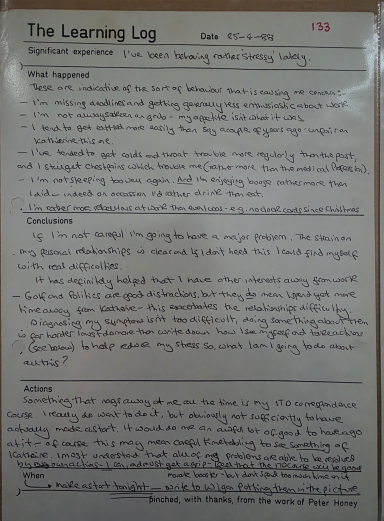 133
The Learning Log
Date 25-4-88
Significant experience I've been behaving rather 'stressy' lately.
What happened
These are indicative of the sort of behaviour that is causing me concern:-
- I'm missing deadlines and getting generally less enthusiastic about work
- I'm not always keen on grub - my appetite isn't what it was
- I tend to get ratted more easily than say a couple of years ago - unfair on
Katherine this one.
- I've tended to get colds and throat trouble more regularly than the past,
and I still get chest pains which trouble me (rather more than the medical
- I'm not sleeping too well again. And I'm enjoying booze rather more than
I did - indeed on occasion I'd rather drink than eat.
I'm rather more rebellious at work than ever I was - e.g. no since Christmas
Conclusions
If I'm not careful I'm going to have a major problem. The strain on
my personal relationships is clear and if I don't heed this I could find myself
with real difficulties.
It has definitely helped that I have other interests away from work
- Golf and Politics are good distractions, but they do mean I spend yet more
time away from Katherine - this exacerbates the relationships difficulty
Diagnosing my symptoms isn't too difficult, doing something about them
is far harder. I must do more than write down how I see myself and
(see below) to help reduce my stress. So, what am I going to do about
all this?
Actions
Something that nags away at me all the time is my ITD correspondence
Course. I really do want to do it, but obviously not sufficiently to have
actually made a start. It would do me an awful lot of good to have a go
at it - of course this may mean careful timetabling to see something of
Katherine. I must understand that all of my problems are able to be resolved
by my own actions - I can, and must get a grip - the ITD course will be good
When morale booster - but don't spend too much time on it
- make a start tonight - write to Wigan putting them in the picture
pinched, with thanks, from the work of Peter Honey